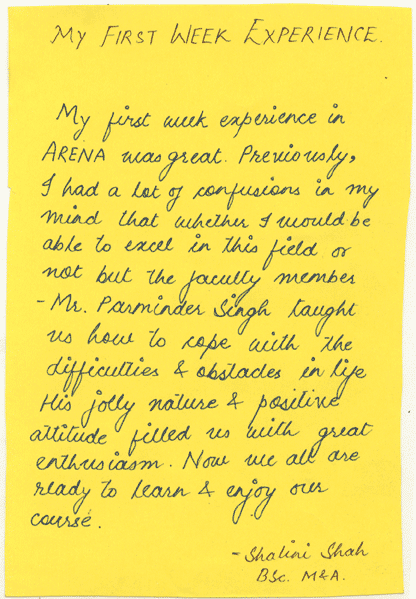 MY FIRST WEEK EXPERIENCE.
My first week experience in
ARENA was great. Previously,
I had a lot of confusions in my
mind that whether I would be
able to excel in this field or
not but the faculty member
- Mr. Parminder Singh taught
us how to cope with the
difficulties & obstacles in life
His jolly nature & positive
attitude filled us with great
enthusiasm. Now we all are
ready to learn & enjoy our
course.
- Shalini Shah
BSc. M&A.